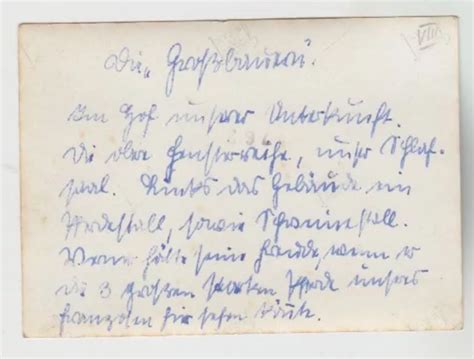 VIII
Die „Großbauern".
Im Hof unserer Unterkunft.
Die obere Fensterreihe, unser Schlaf-
saal. Links das Gebäude ein
Pferdestall, sowie Schweinestall.
Werner hätte seine Freude, wenn er
die 3 großen starken Pferde unseres
Franzosen hier sehen könnte.